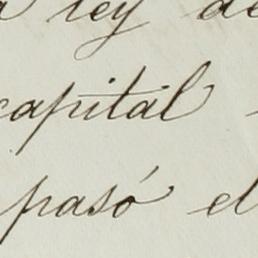 a ley de
capital
pasó el